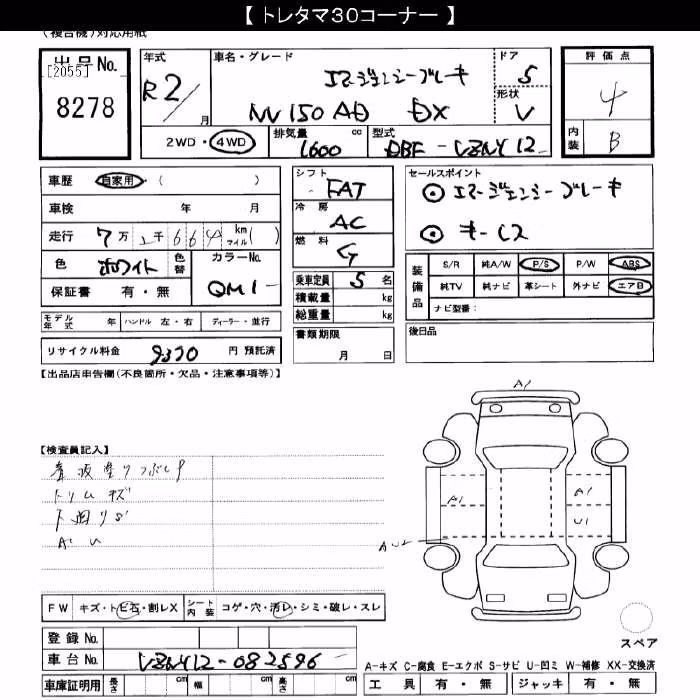 【 トレタマ30コーナー 】
(複合機)対応用紙
出品No.
[2055]
8278
年式
R2/
月
車名・グレード
エマージェンシーブレーキ
NV150AD DX
ドア
5
形状
V
評価点
4
内装
B
2WD・4WD
排気量
cc
1600
型式
DBF-VZNY12
車歴
自家用・( )
車検 年 月
走行 7万 2千 664 km マイル( )
色 ホワイト 色替
カラーNo.
QM1-
保証書 有・無
モデル年式 年
ハンドル 左・右
ディーラー・並行
リサイクル料金 9370 円 預託済
シフト
FAT
冷房
AC
燃料
G
乗車定員 5 名
積載量 kg
総重量 kg
書類期限
月 日
セールスポイント
◎ エマージェンシーブレーキ
◎ キーレス
装備品
S/R 純A/W P/S P/W ABS
純TV 純ナビ 革シート 外ナビ エアB
ナビ型番:
後日品
【出品店申告欄(不良箇所・欠品・注意事項等)】
【検査員記入】
トリムキズ
下廻りS
A U
A1
A1
A1
U1
FW キズ・トビ石・割レX
シート内装 コゲ・穴・汚レ・シミ・破レ・スレ
登録No.
車台No. VZNY12-082596
車庫証明用 長さ cm 幅 cm 高さ cm
スペア
A-キズ C-腐食 E-エクボ S-サビ U-凹ミ W-補修 XX-交換済
工具 有・無 ジャッキ 有・無